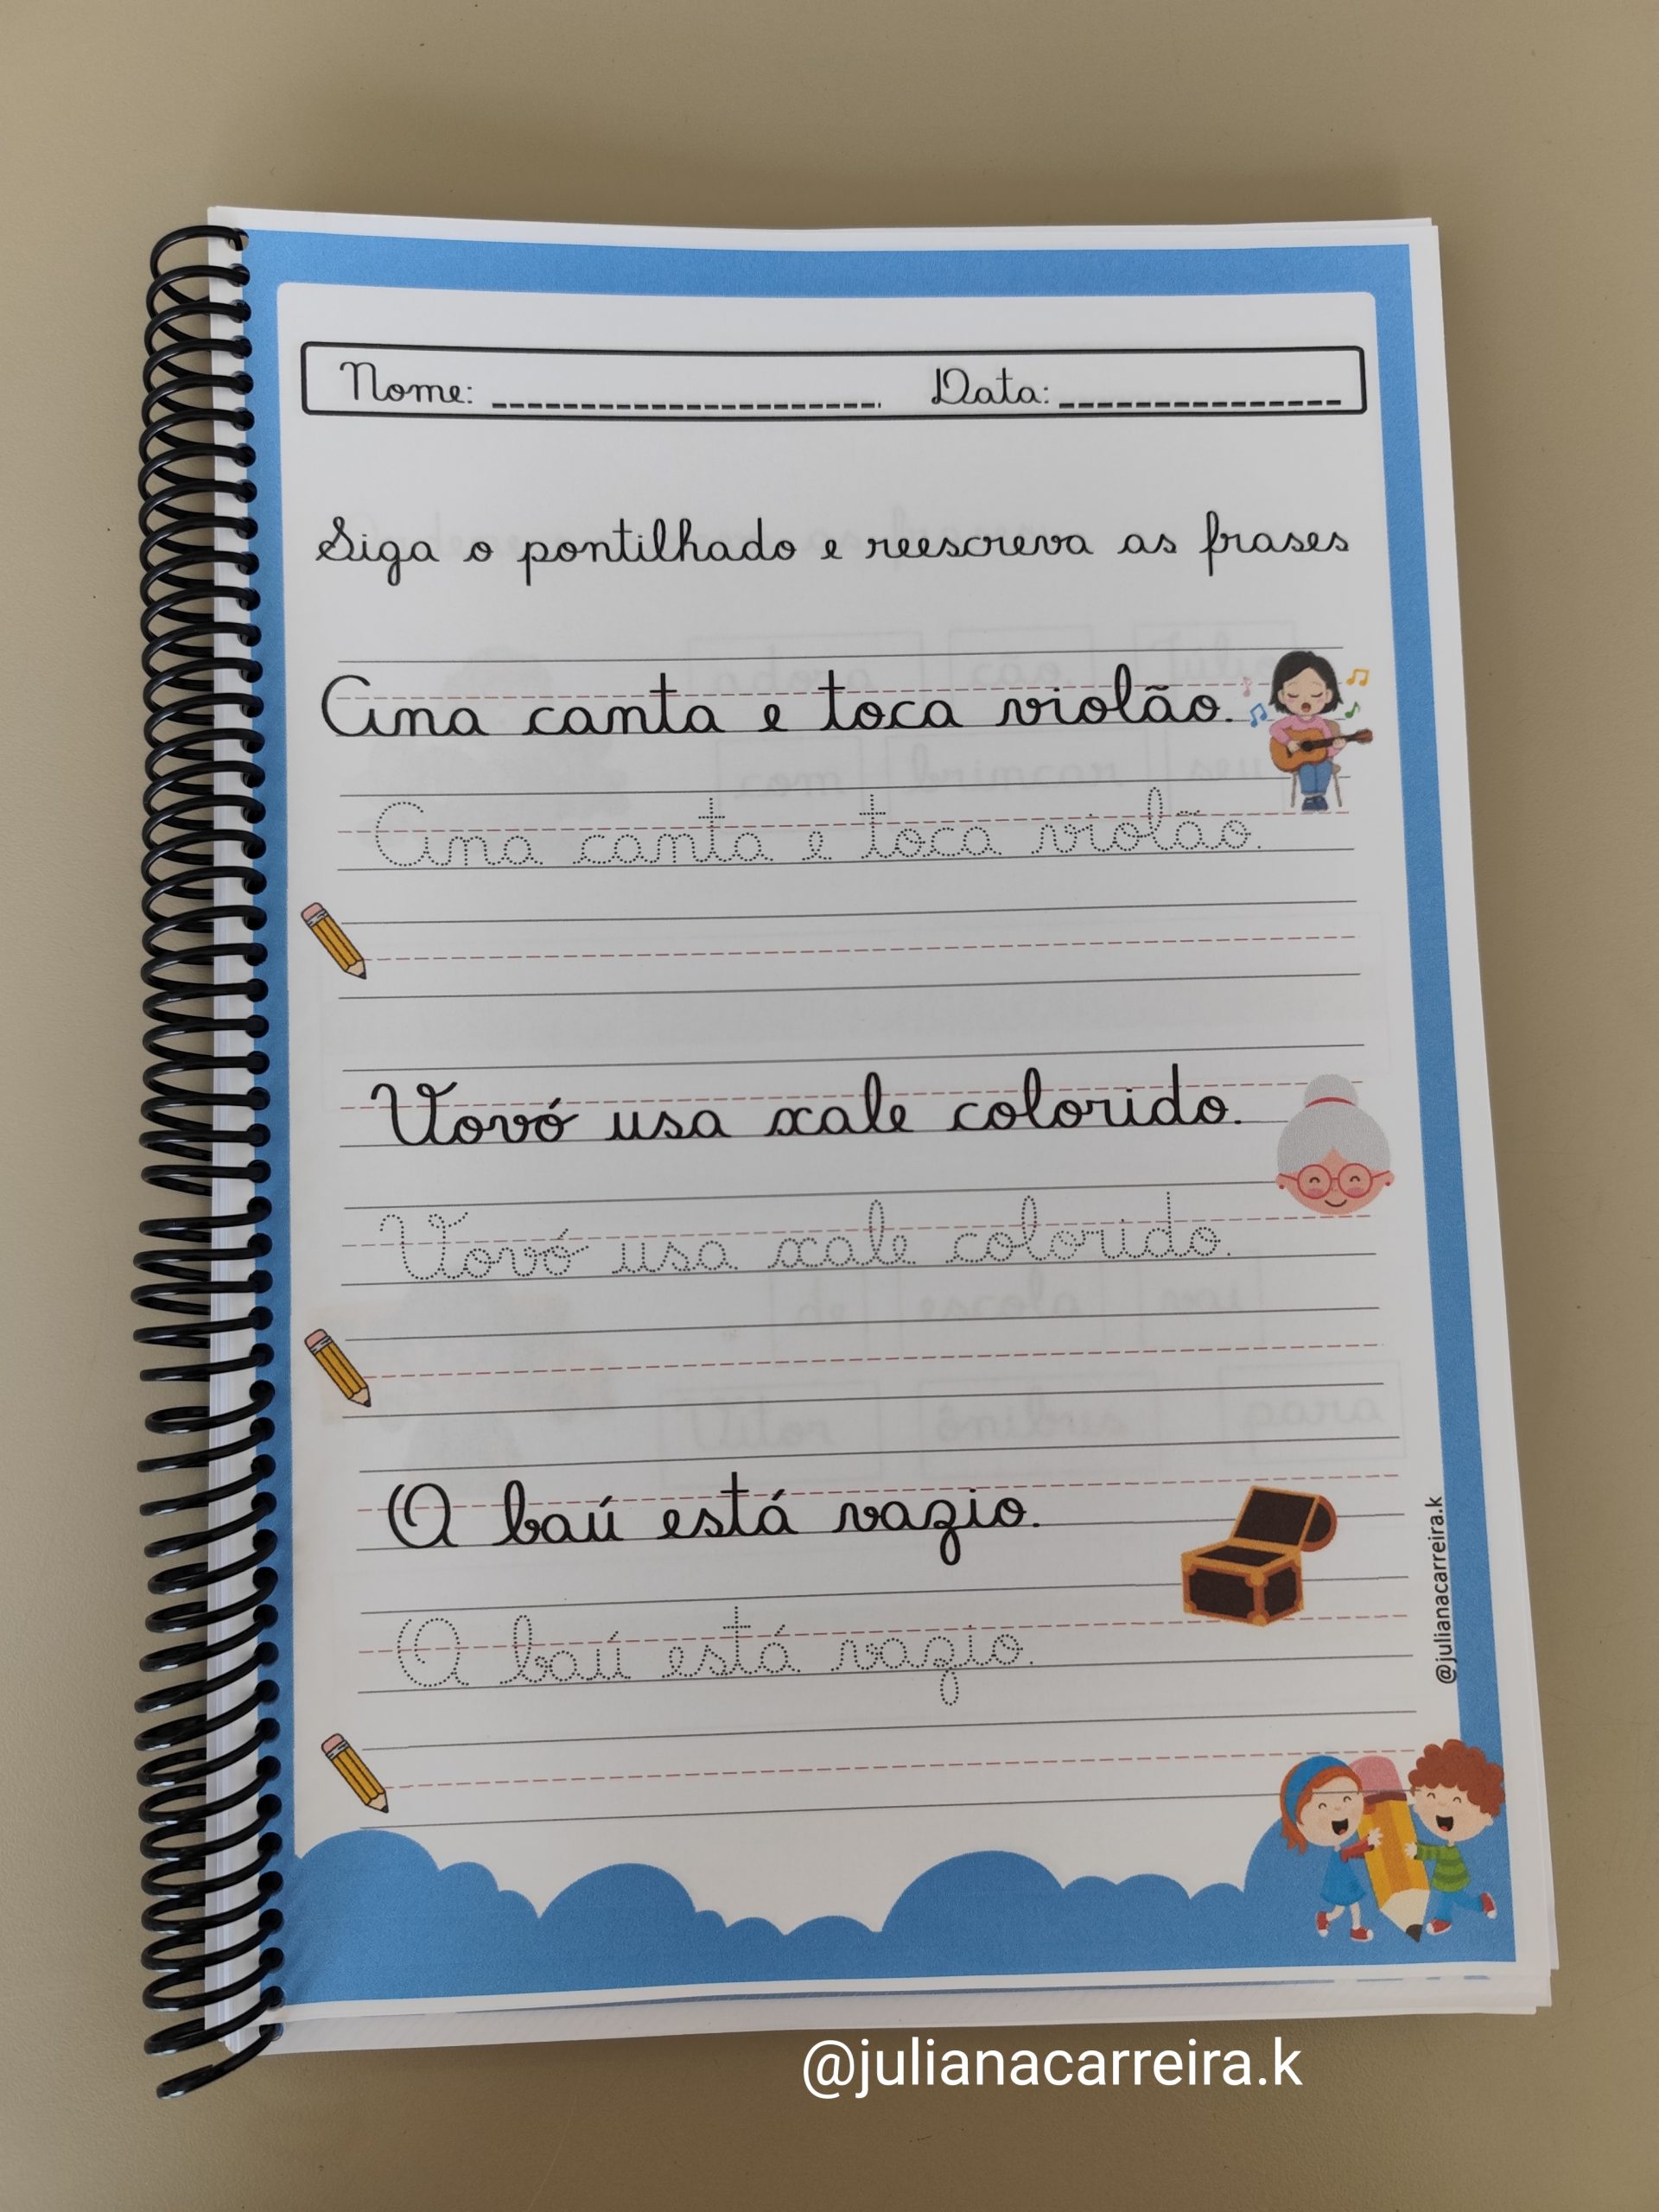 Nome: Data:
Siga o pontilhado e reescreva as frases
Ana canta e toca violão.
Ana canta e toca violão.
Vovó usa xale colorido.
Vovó usa xale colorido.
O baú está vazio.
O baú está vazio.
@julianacarreira.k
@julianacarreira.k